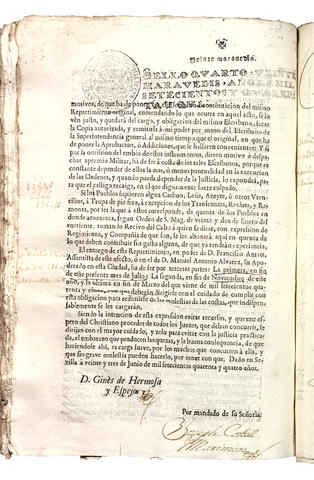 Veinte maravedis.
SELLO QVARTO, VEINTE
MARAVEDIS, AÑO DE MIL
SETECIENTOS Y QVAREN-
TA Y QVATRO.
motivos, de que ha de poner à continuacion del mismo
Repartimiento original, enmendando lo que ocurra en aquel acto, si lo
ven justo, y quedarà del cargo, y obligacion del mismo Escribano, sacar
la Copia autorizada, y remitirla à mi poder por mano del Escribano de
la Superintendencia general al mismo tiempo que el original, en que ha
de poner la Aprobacion, ò Addiciones, que se hallaren convenientes: Y si
por la omission del embio de estos instrumentos, dieren motivo à despa-
char apremio Militar, ha de ser à costa de los tales Escribanos, porque es
constante depender de ellos la mas, ò menos puntualidad en la execucion
de las Ordenes, y quando pueda depender de la Justicia, lo expondrà, pa-
ra que el castigo recaiga, en el que dignamente fuere culpado.
Si los Pueblos supliesen algun Carbon, Leña, Azeyte, ù otros Vten-
silios, à Tropa de pie fixo, à excepcion de los Transeuntes, Reclutas, y Re-
monta, por ser la que à estos corresponde, de quenta de los Pueblos en
donde aconteciere, segun Orden de S. Mag. de veinte y dos de Enero del
corriente, tomaràn Recivo del Cabo à quien se diere, con expression de
Regimiento, y Compañia de que son, se les abonarà aqui en quenta de
lo que deben contribuir sin gasto alguno, de que ya tendràn experiencia.
El entrego de este Repartimiento, en poder de D. Francisco Arnaiz,
Assentista de este efecto, ò en el de D. Manuel Antonio Alvarez, su Apo-
derado en esta Ciudad, ha de ser por terceras partes: La primera, en fin
de este presente mes de Julio; La segunda, en fin de Noviembre de este
año, y la ultima en fin de Marzo del que viene de mil setecientos qua-
renta y cinco, con que deberàn dirigirse con el cuidado de cumplir con
esta obligacion para redimirse de las molestias de las costas, que indispen-
sablemente se les cargaràn.
Siendo la intencion de esta expression evitar recursos, y quexas: espe-
ro del Christiano proceder de todos los Juezes, que deban concurrir, se di-
rijan con el mayor cuidado, y zelo para evitar con la justicia practica-
da, el embarazo que producen las quexas, y la buena consequencia, de que
haciendose assi, es carga suave, por los muchos que concurren à ella, y
que sin grave molestia pueden hacerlo, por tener con que. Dado en Se-
villa à veinte y tres de Junio de mil setecientos quarenta y quatro años.
D. Ginès de Hermosa
y Espejo
Por mandado de su Señoria.
Joseph